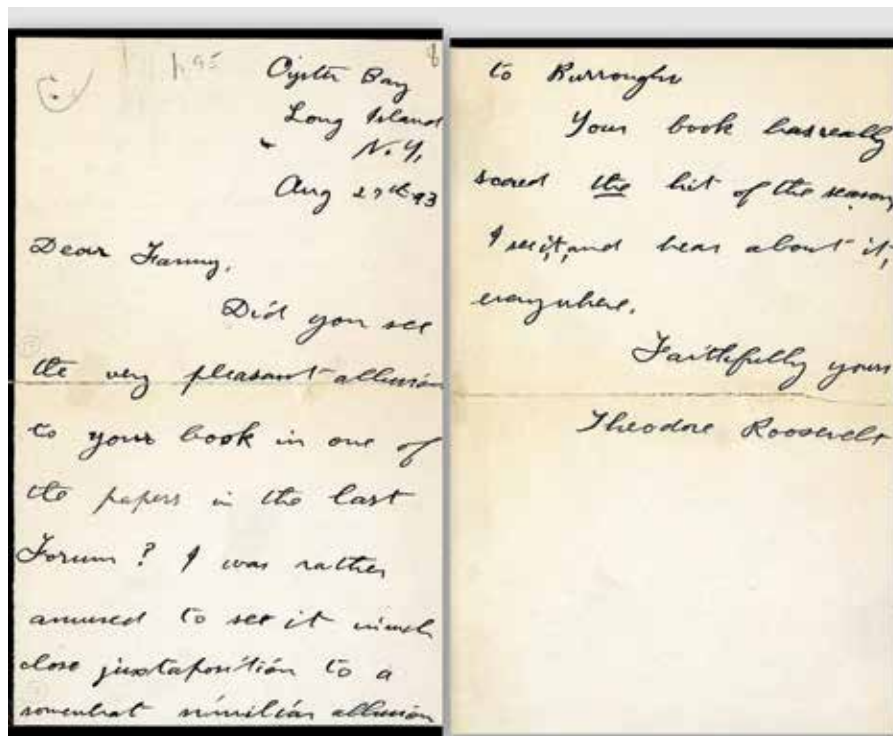 8
Oyster Bay
Long Island
N.Y.
Aug 27th 93
Dear Fanny,
Did you see
the very pleasant allusion
to your book in one of
the papers in the last
Forum? I was rather
amused to see it in such
close juxtaposition to a
somewhat similiar allusion
to Burroughs
Your book has really
scored the hit of the season,
I see it, and hear about it,
everywhere.
Faithfully yours
Theodore Roosevelt